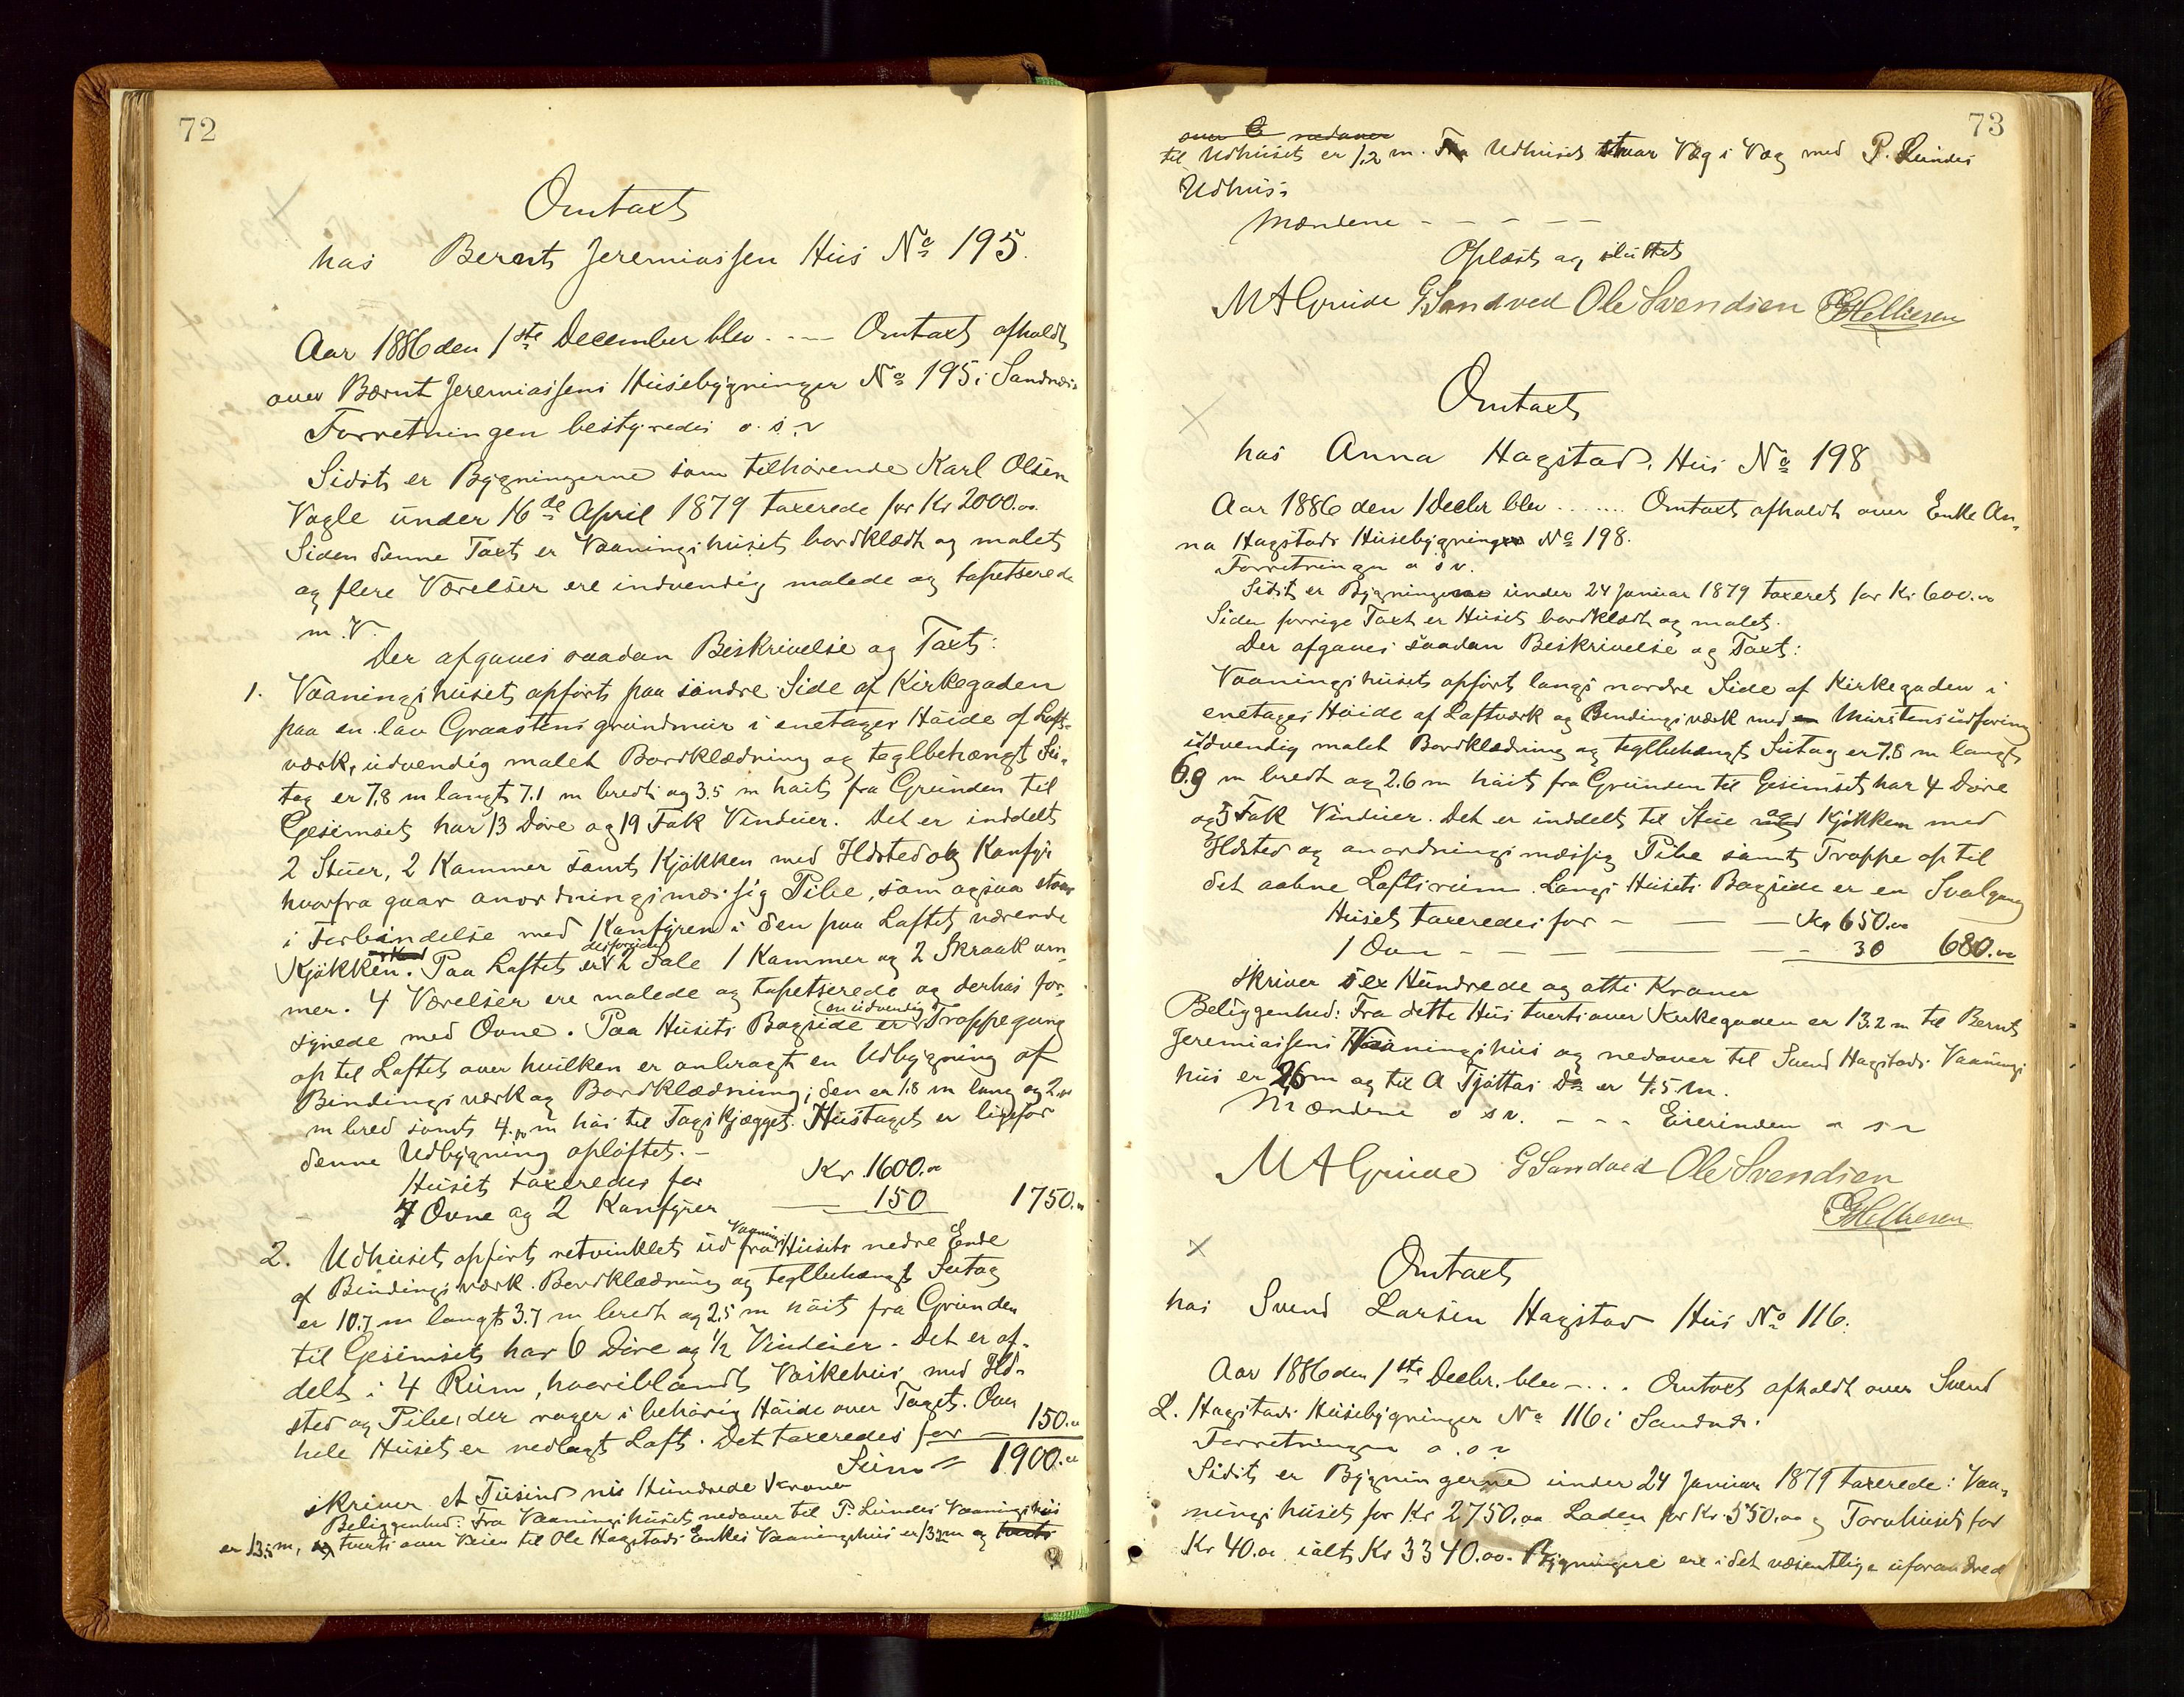 72
Omtaxt
hos Bernt Jeremiassen Hus No 195.
Aar 1886 den 1ste December blev . - — Omtaxt afholdt
over Bernt Jeremiassens Husebygninger No 195 i Sandnæs
Forretningen bestyredes o. s. v
Sidst er Bygningerne som tilhørende Karl Olsen
Vagle under 16de April 1879 taxerede for Kr 2000.00
Siden denne Taxt er Vaaningshuset bordklædt og malet
og flere Værelser ere indvendig malede og tapetserede
m. V.
Der afgaves saadan Beskrivelse og Taxt:
1. Vaaningshuset opført paa søndre Side af Kirkegaden
paa en lav Graastensgrundmur i enetages Høide af Loft-
værk, udvendig malet Bordklædning og teglbehængt Su-
tag er 7,8 m langt 7.1 m bredt og 3.5 m høit fra Grunden til
Gesimset har 13 Døre og 19 Fak Vinduer. Det er inddelt
2 Stuer, 2 Kammer samt Kjøkken med Ildsted og Komfyr
hvorfra gaar anordningsmæssig Pibe, som ogsaa staar
i Forbindelse med Komfyren i den paa Loftet værende
Kjøkken. Paa Loftet er desforuden 2 Sale 1 Kammer og 2 Skraakam
mer. 4 Værelser ere malede og tapetserede og derhos for-
synede med Ovne. Paa Husets Bagside er en udvendig Trappegang
op til Loftet over hvilken er anbragt en Udbygning af
Bindingsværk og Bordklædning; den er 1.8 m lang og 2.
m bred samt 4. m høi til Tagskjægget. Hustaget er ligefor
denne Udbygning opløftet. -
Huset taxeredes for Kr. 1600.00
7 Ovne og 2 Komfyrer — 150 1750.00
2. Udhuset opført retvinklet ud fra Vaanings Husets nedre Ende
af Bindingsværk. Bordklædning og teglbehængt Sutag
er 10.7 m langt 3.7 m bredt og 2,5 m høit fra Grunden
til Gesimset har 6 Døre og 1/2 Vinduer. Det er af-
delt i 4 Rum, hvoriblandt Vaskehus med Ild-
sted og Pibe, der rager i behørig Høide over Taget. Over
hele Huset er nedlagt Loft. Det taxeredes for — 150.00
Sum = 1900.00
skriver et Tusind ni Hundrede Kroner
Beliggenhed: Fra Vaaningshuset nedover til P. Lundes Vaaningshus
er 13.5 m, og tverts over Veien til Ole Hagstads Enkes Vaaningshus er 13,2 m og tverts
73
over & nedover
til Udhuset er 1.2 m. Fra Udhuset staar Væg i Væg med P. Lundes
Udhus.
Mændene - - - - -
Oplæst og sluttet
M A Grude G Sandved Ole Svendsen Helliesen
Omtaxt
hos Anna Hagstad. Hus No 198
Aar 1886 den 1 Decbr blev ....... Omtaxt afholdt over Enke An-
na Hagstads Husebygninger No 198.
Forretningen o s v.
Sidst er Bygningerne under 24 Januar 1879 taxeret for Kr 600.00
Siden forrige Taxt er Huset bordklædt og malet.
Der afgaves saadan Beskrivelse og Taxt:
Vaaningshuset opført langs nordre Side af Kirkegaden i
enetages Høide af Loftværk og Bindingsværk med Murstensudforing
udvendig malet Bordklædning og teglbehængt Sutag er 7,8 m langt
6.9 m bredt og 2.6 m høit fra Grunden til Gesimset har 4 Døre
og 5 Fak Vinduer. Det er inddelt til Stue og Kjøkken med
Ildsted og anordningsmæssig Pibe samt Trappe op til
det aabne Loftsrum. Langs Husets Bagside er en Svalgang
Huset taxeredes for — — Kr 650.00
1 Ovn — — 30 680.00
skriver sex Hundrede og otti Kroner
Beliggenhed: Fra dette Hus tverts over Kirkegaden er 13.2 m til Bernt
Jeremiassens Vaaningshus og nedover til Svend Hagstads Vaanings
hus er 26 m og til A Tjøttas Do er 4.5 m.
Mændene o s v. - - - Eierinden o s v
M A Grude G Sandved Ole Svendsen
Helliesen
Omtaxt
hos Svend Larsen Hagstad Hus No 116.
Aar 1886 den 1ste Decbr. blev - . . Omtaxt afholdt over Svend
L. Hagstads Husebygninger No 116 i Sandnæs.
Forretningen o. s v
Sidst er Bygningerne under 24 Januar 1879 taxerede: Vaa-
ningshuset for Kr 2750.00 Laden for Kr 550.00 og Tornhuset for
Kr 40.00 ialt Kr 3340.00. Bygningerne ere i det væsentlige uforandrede